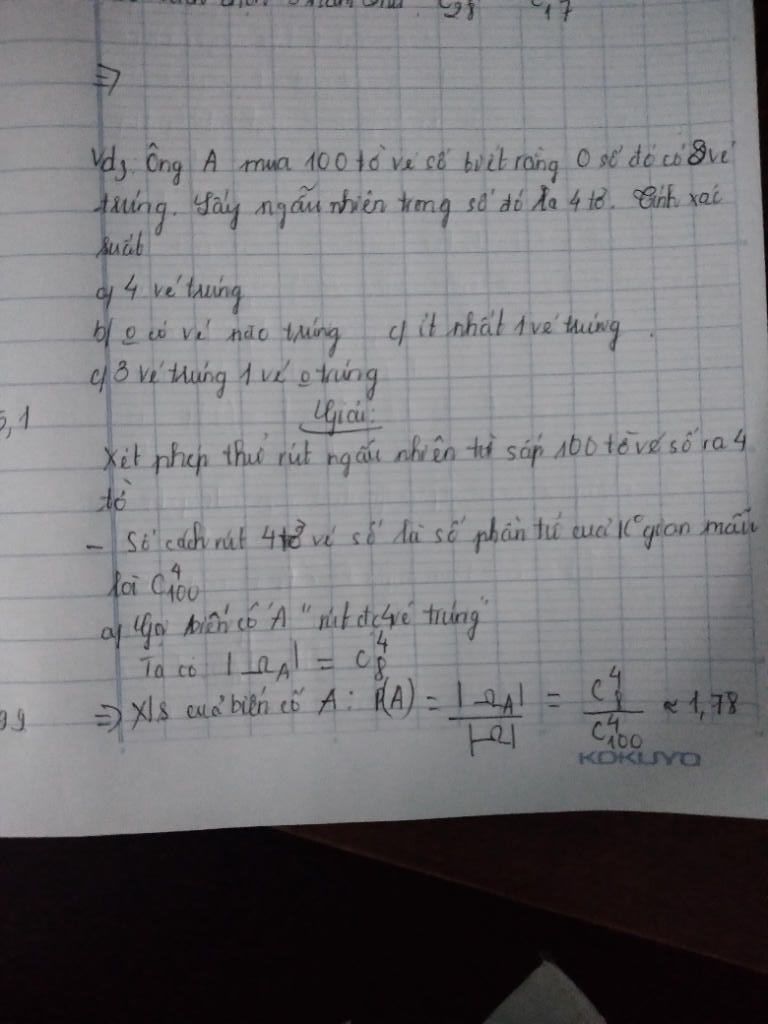 ⇒
Vd3. Ông A mua 100 tờ vé số biết rằng 0 số đó có 8 vé
trúng. Lấy ngẫu nhiên trong số đó ra 4 tờ. Tính xác
suất
a) 4 vé trúng
b) o có vé nào trúng c) ít nhất 1 vé trúng.
c) 3 vé trúng 1 vé o trúng
Giải:
Xét phép thử rút ngẫu nhiên từ sấp 100 tờ vé số ra 4
tờ
- Số cách rút 4 tờ vé số là số phần tử của K° gian mẫu
là C⁴₁₀₀
a) Gọi biến cố A "rút đc 4 vé trúng"
Ta có |Ω_A| = C⁴₈
⇒ X/s của biến cố A: P(A) = |Ω_A| / |Ω| = C⁴₈ / C⁴₁₀₀ ≈ 1,78
KOKUYO